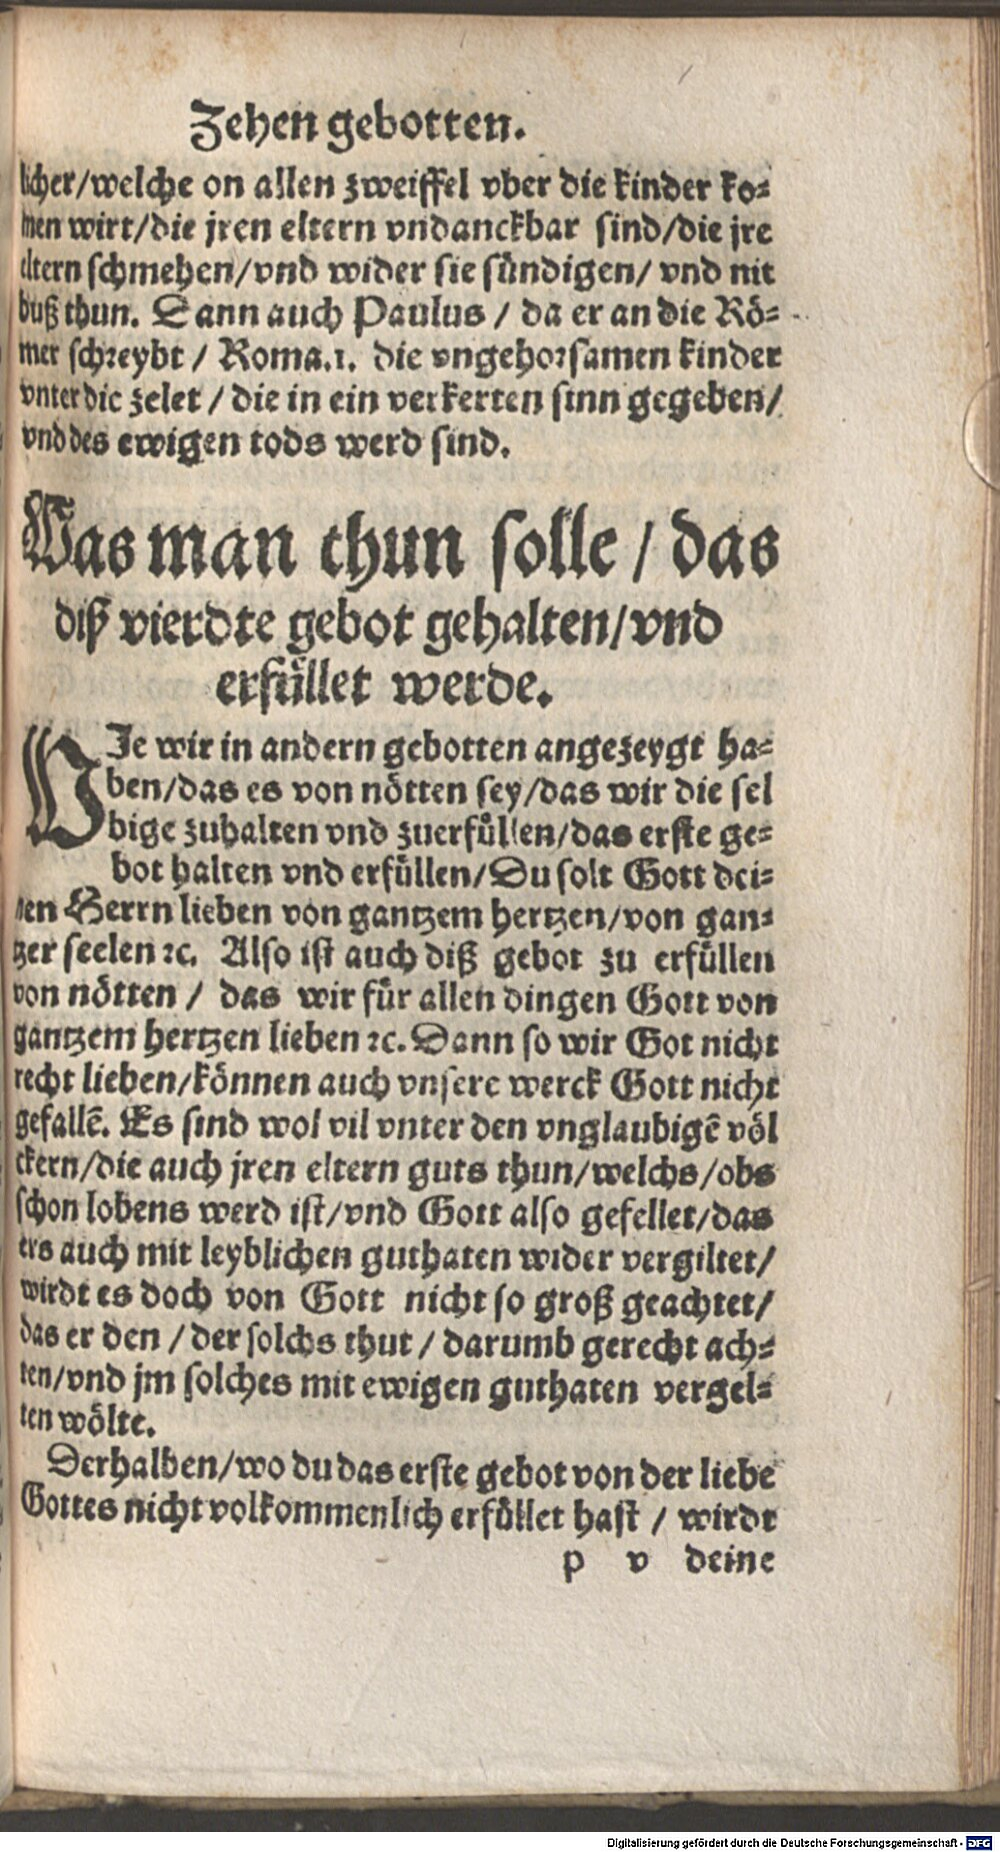 Zehen gebotten.
licher/welche on allen zweiffel vber die kinder ko⸗
men wirt/die jren eltern vndanckbar sind/die jre
eltern schmehen/vnd wider sie sündigen/ vnd nit
buß thun. Dann auch Paulus / da er an die Rö⸗
mer schreybt / Roma.1. die vngehorsamen kinder
vnter die zelet / die in ein verkerten sinn gegeben/
vnd des ewigen tods werd sind.
Was man thun solle / das
diß vierdte gebot gehalten/vnd
erfüllet werde.
WJe wir in andern gebotten angezeygt ha⸗
ben/das es von nötten sey/das wir die sel
bige zuhalten vnd zuerfüllen/das erste ge⸗
bot halten vnd erfüllen/Du solt Gott dei⸗
nen Herrn lieben von gantzem hertzen/von gan⸗
tzer seelen ꝛc. Also ist auch diß gebot zu erfüllen
von nötten / das wir für allen dingen Gott von
gantzem hertzen lieben ꝛc. Dann so wir Got nicht
recht lieben/können auch vnsere werck Gott nicht
gefallē. Es sind wol vil vnter den vnglaubigē völ
ckern/die auch jren eltern guts thun/welchs/obs
schon lobens werd ist/vnd Gott also gefellet/das
ers auch mit leyblichen guthaten wider vergiltet/
wirdt es doch von Gott nicht so groß geachtet/
das er den / der solchs thut / darumb gerecht ach⸗
ten/vnd jm solches mit ewigen guthaten vergel⸗
ten wölte.
Derhalben/wo du das erste gebot von der liebe
Gottes nicht volkommenlich erfüllet hast / wirdt
p v deine
Digitalisierung gefördert durch die Deutsche Forschungsgemeinschaft - DFG